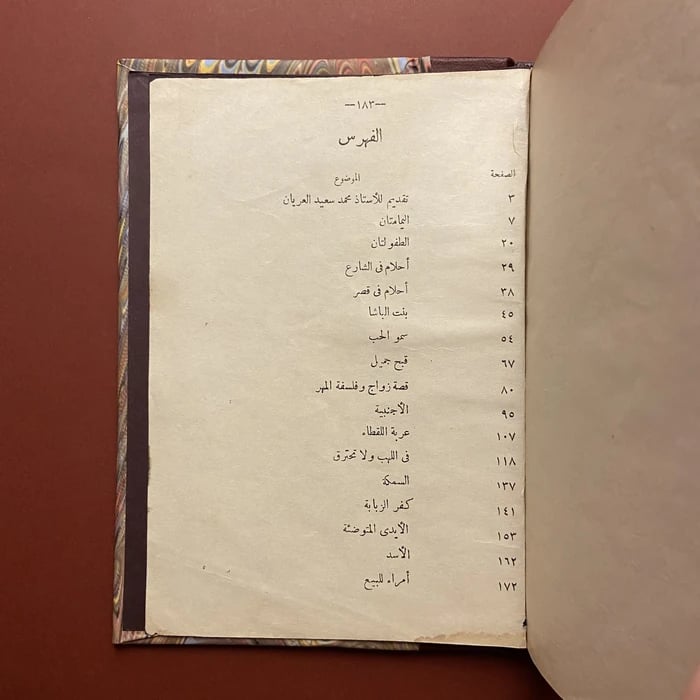 —١٨٣—
الفهرس
الصفحة الموضوع
٣ تقديم للأستاذ محمد سعيد العريان
٧ اليمامتان
٢٠ الطفولتان
٢٩ أحلام فى الشارع
٣٨ أحلام فى قصر
٤٥ بنت الباشا
٥٤ سمو الحب
٦٧ قبح جميل
٨٠ قصة زواج وفلسفة المهر
٩٥ الأجنبية
١٠٧ عربة اللقطاء
١١٨ فى اللهب ولا تحترق
١٣٧ السمكة
١٤١ كفر الزبابة
١٥٣ الأيدى المتوضئة
١٦٢ الأسد
١٧٢ أمراء للبيع